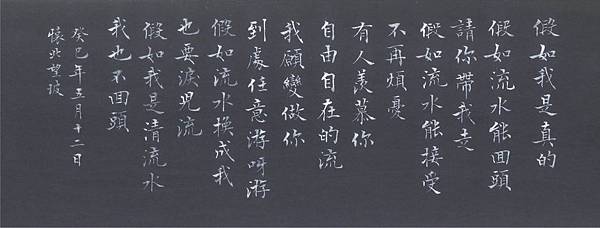 假如我是真的
假如流水能回頭
請你帶我走
假如流水能接受
不再煩憂
有人羨慕你
自由自在的流
我願變做你
到處任意游呀游
假如流水換成我
也要淚兒流
假如我是清流水
我也不回頭
癸巳年五月十二日